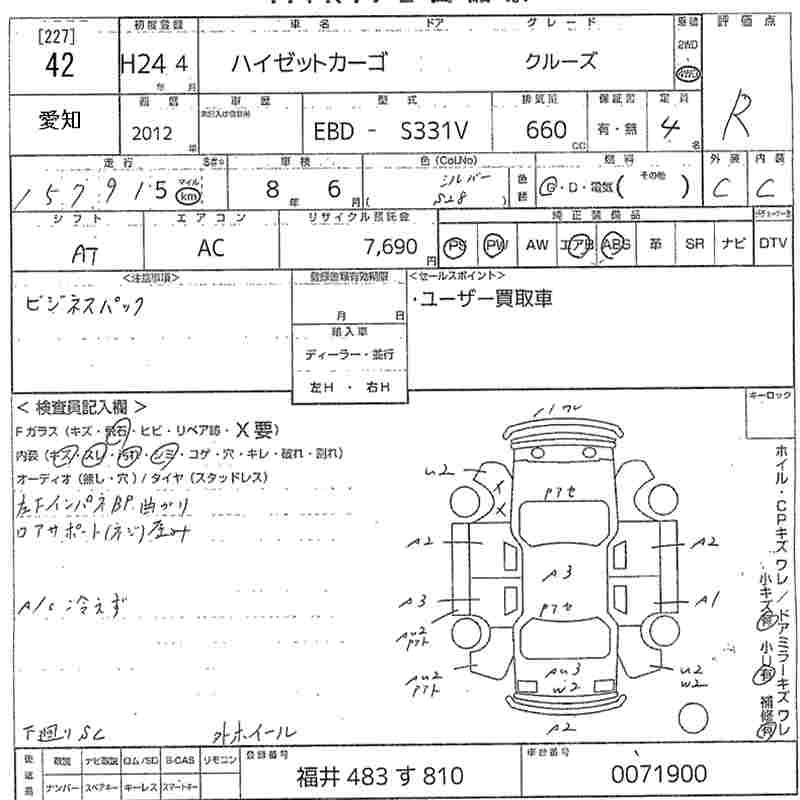 [227]
42
初度登録
車名
ドア
グレード
H24 4
年 月
ハイゼットカーゴ
クルーズ
2WD
4WD
評価点
R
愛知
西暦
2012
年
車歴
型式
EBD - S331V
排気量
660
CC
保証書
有・無
定員
4
名
走行
157,915
マイル
km
車検
8 年 6 月
色 (Col.No)
シルバー
S28
色替
燃料
G・D・電気( その他 )
外装
C
内装
C
シフト
AT
エアコン
AC
リサイクル預託金
7,690 円
純正装備品
PS
PW
AW
エアB
ABS
革
SR
ナビ
DTV
<注意事項>
ビジネスパック
登録書類有効期限
月 日
輸入車
ディーラー・並行
左H ・ 右H
<セールスポイント>
・ユーザー買取車
キーロック
<検査員記入欄>
Fガラス (キズ・飛石・ヒビ・リペア跡・X要)
内装 (キズ・スレ・汚れ・シミ・コゲ・穴・キレ・破れ・割れ)
オーディオ (無し・穴) / タイヤ (スタッドレス)
左下インパネBP曲がり
ロアサポート(ネジ)歪み
A/C 冷えず
下廻りSC
外ホイール
ワレ
U2
X
X
Pアセ
A2
A2
A3
A3
A1
Pアセ
AU2
Pアト
AU2
Pアト
AU3
W2
U2
W2
A2
ホイル・CPキズ ワレ / ドアミラーキズ ワレ
小キズ有 小U有 補修有
後送品
取説
ナビ取説
ロム/SD
B-CAS
リモコン
ナンバー
スペアキー
キーレス
スマートキー
登録番号
福井 483 す 810
車台番号
0071900